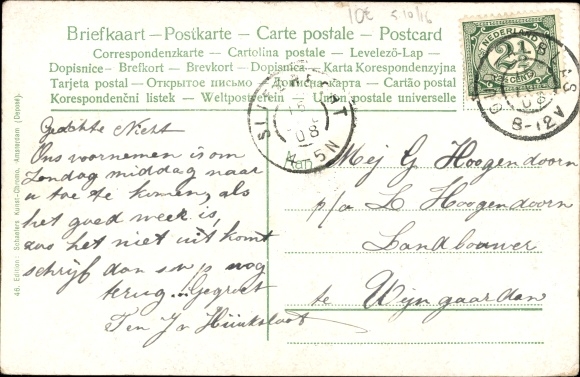 10€ 5/10/16
Briefkaart – Postkarte – Carte postale – Postcard
Correspondenzkarte – Cartolina postale – Levelező-Lap –
Dopisnice – Brefkort – Brevkort – Dopisnica – Karta Korespondencyjna
Tarjeta postal – Открытое письмо – Дописна карта – Cartão postal
Korespondenční listek – Weltpostverein – Union postale universelle
NEDERLAND
2½
CENT
8-12V
SLI DRECHT
08
5N
Geachte Nicht
Ons voornemen is om
Zondag middag naar
u toe te komen, als
het goed weer is,
als het niet uit komt
schrijf dan s.v.p nog
terug... Gegroet
T en J v
Mej G Hoogendoorn
p/a L Hoogendoorn
Landbouwer
te Wijngaarden
46. Edition Schaefers Kunst-Chromo, Amsterdam (Deposé).